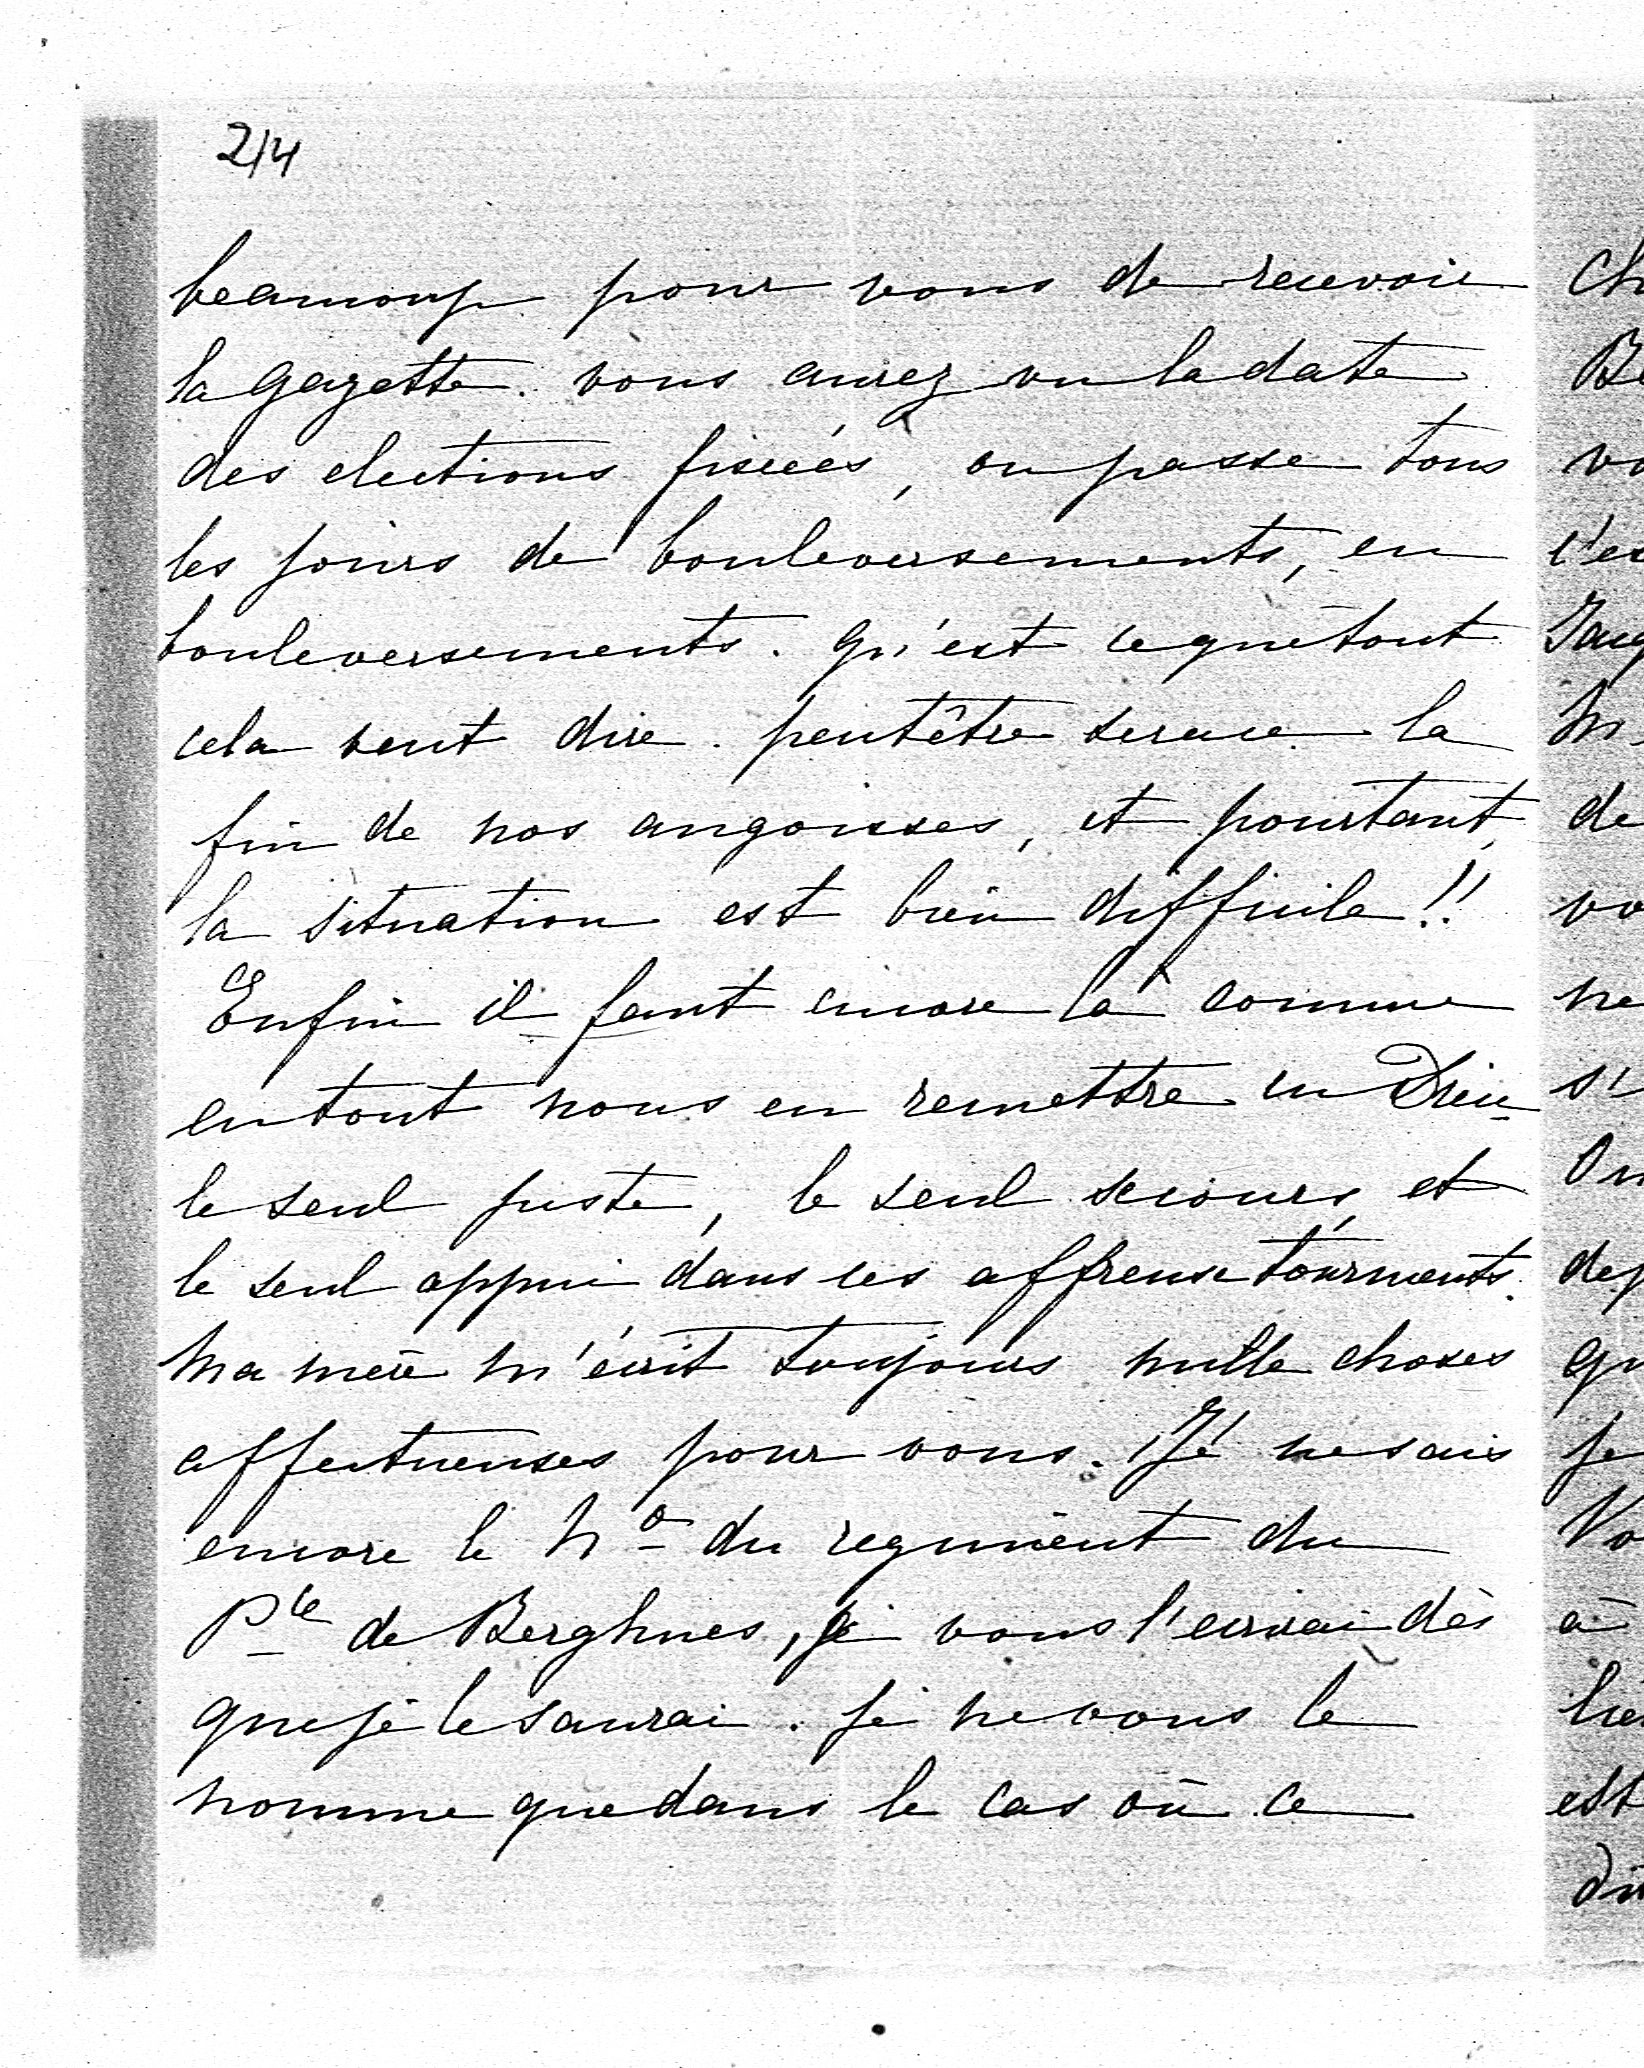 2/4
beaucoup pour vous de recevoir
la gazette. vous aurez vu la date
des elections fixées, on passe tous
les jours de bouleversements, en
bouleversements. qu'est ce que tout
cela veut dire. peutêtre serace la
fin de nos angoisses, et pourtant,
la situation est bien difficile!!
Enfin il faut encore là comme
en tout nous en remettre en Dieu
le seul juste, le seul secours, et
le seul appui dans ces affreux tourments.
Ma mère m'écrit toujours mille choses
affectueuses pour vous. Je ne sais
encore le No du regiment du
Pce de Berghes, je vous l'ecrirai dès
que je le saurai. je ne vous le
nomme que dans le cas où ce